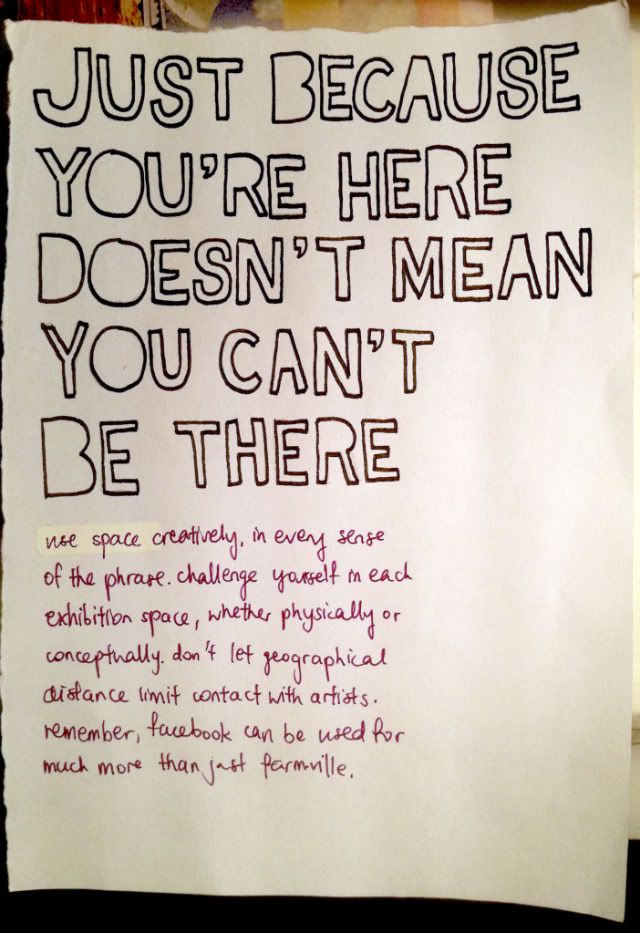 JUST BECAUSE
YOU'RE HERE
DOESN'T MEAN
YOU CAN'T
BE THERE
use space creatively, in every sense
of the phrase. challenge yourself in each
exhibition space, whether physically or
conceptually. don't let geographical
distance limit contact with artists.
remember, facebook can be used for
much more than just farmville.